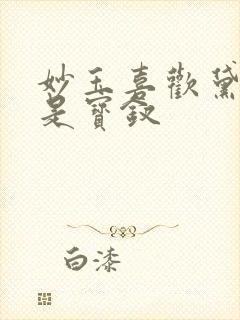 妙玉喜歡黛
是寶釵
白漆